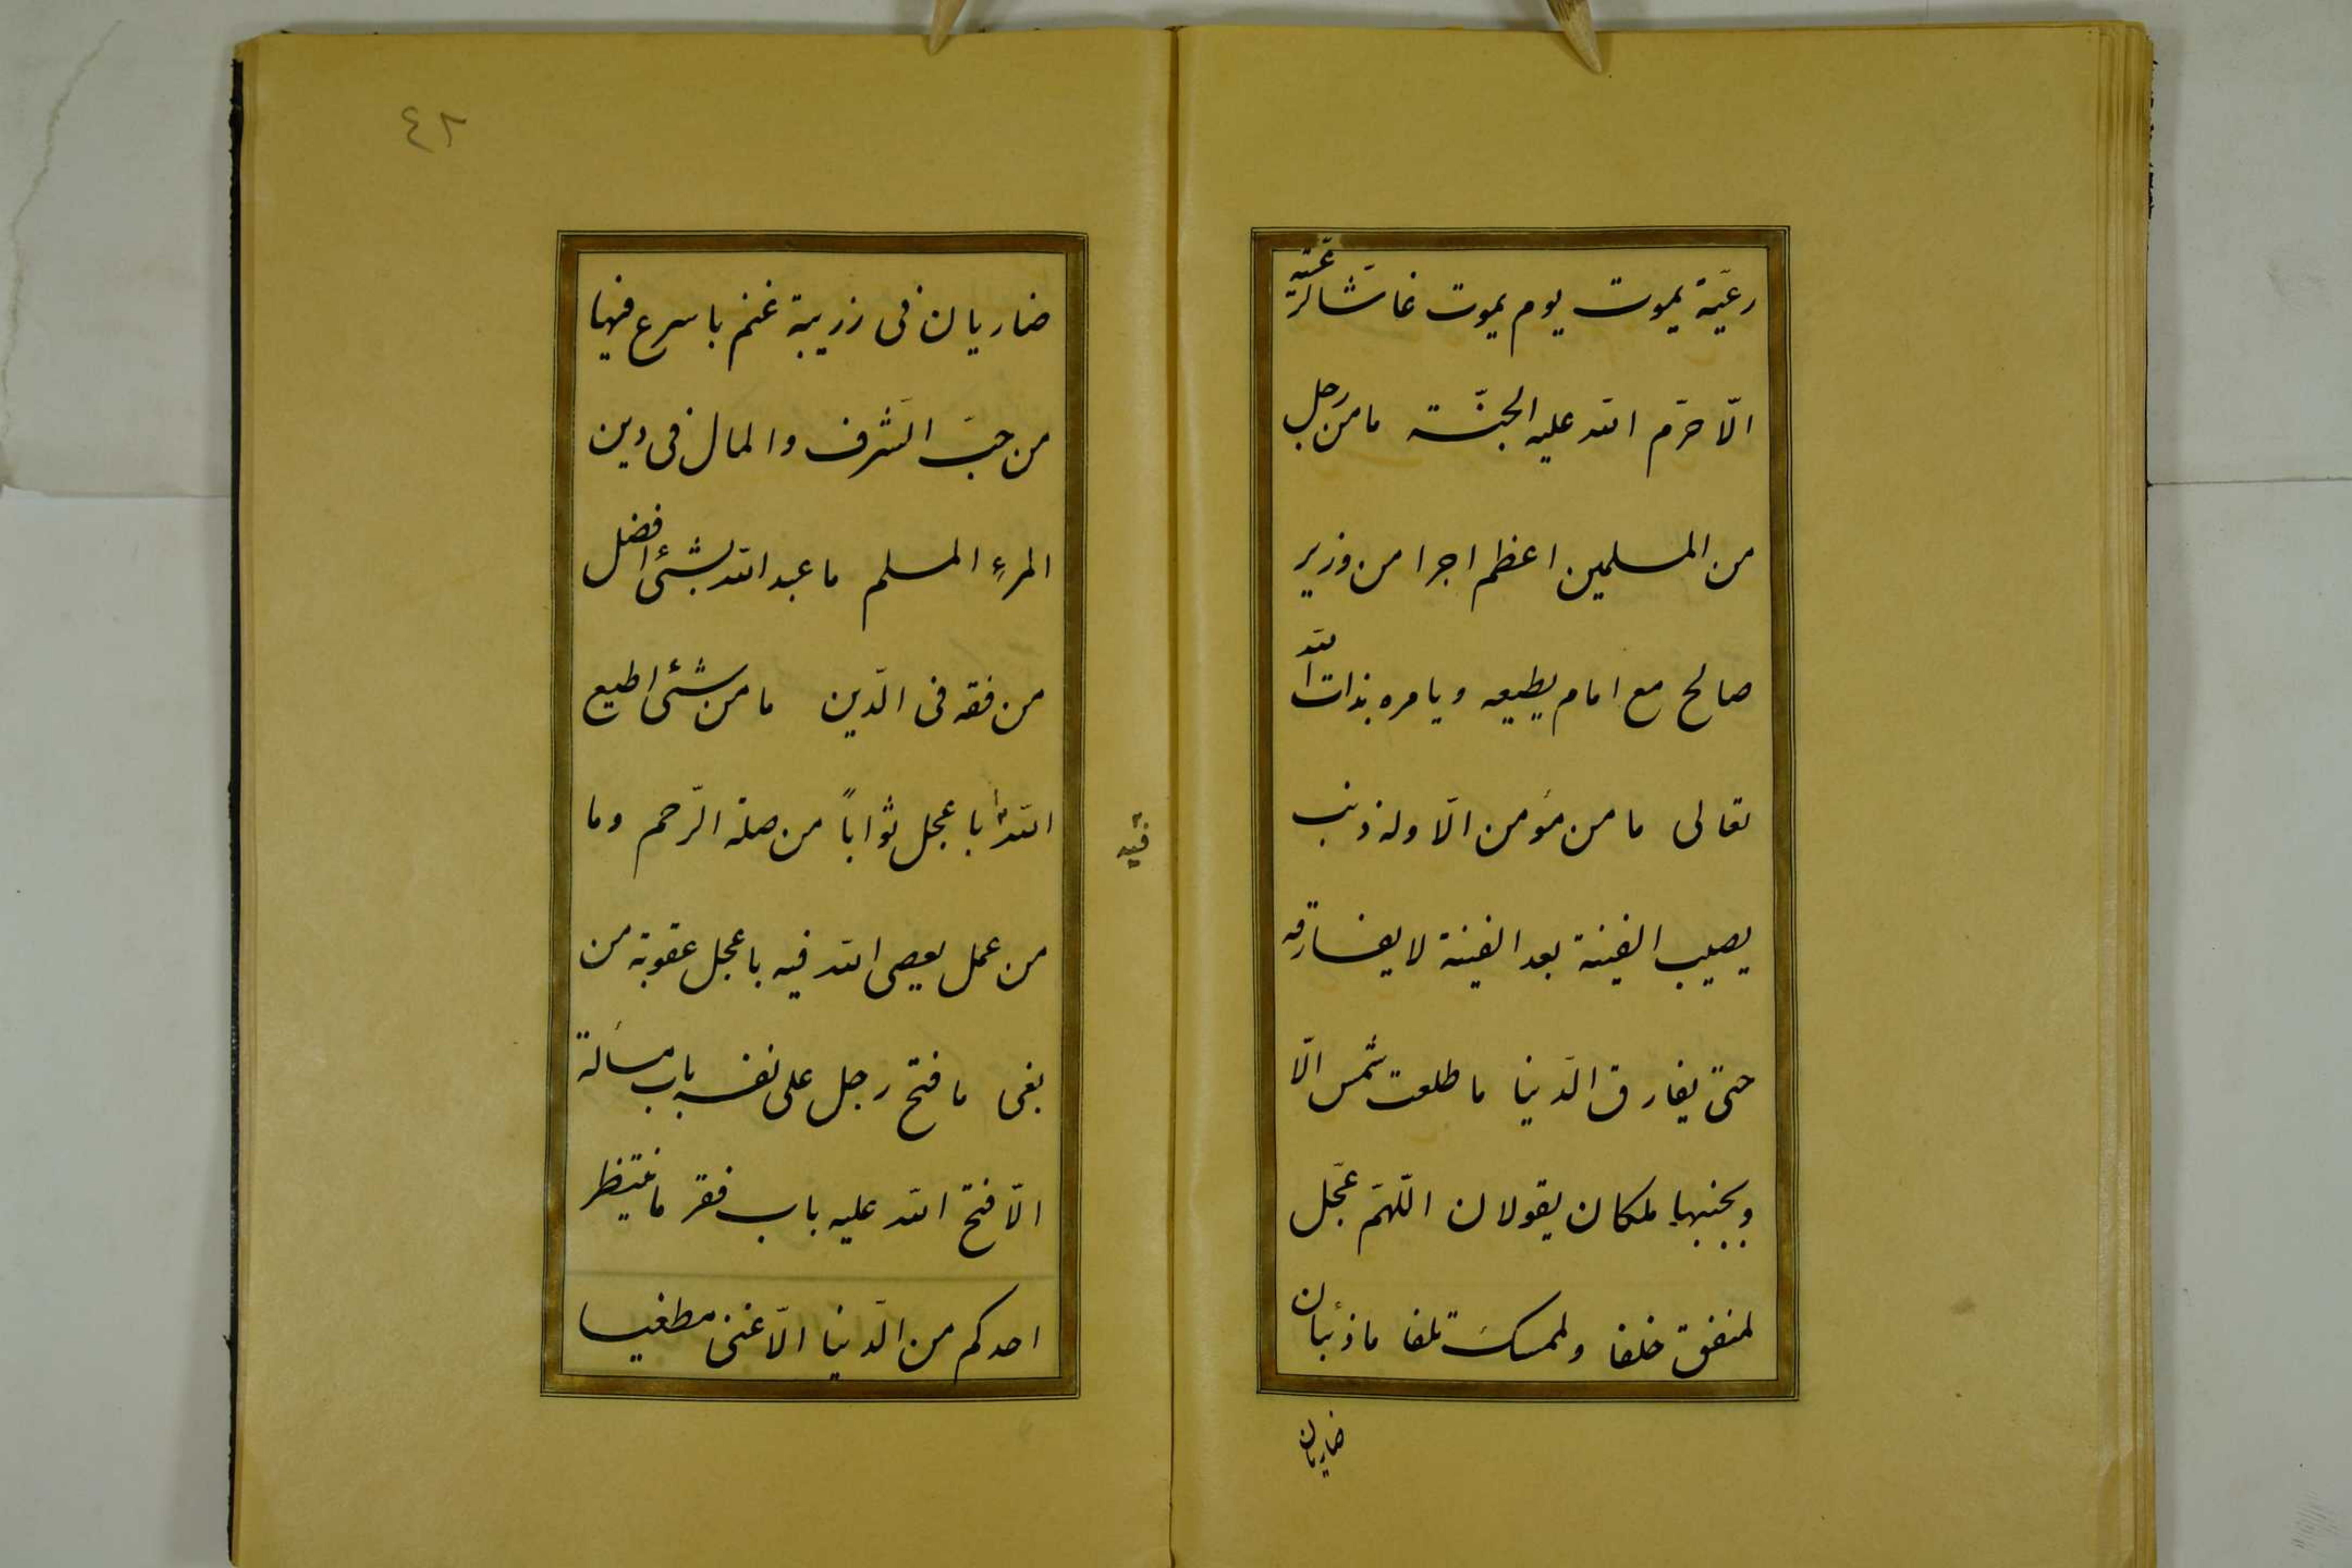 رعيّة يموت يوم يموت غاشا لرعيّته
الّا حرّم الله عليه الجنّة ما من رجل
من المسلمين اعظم اجرا من وزير
صالح مع امام يطيعه ويامره بذات الله
تعالى ما من مؤمن الّا وله ذنب
يصيب الفينة بعد الفينة لا يفارقه
حتىّ يفارق الدّنيا ما طلعت شمس الّا
وبجنبيها ملكان يقولان اللّهمّ عجّل
لمنفق خلفا ولممسك تلفا ما ذئبان
ضاريان
٤٢
ضاريان فى زريبة غنم باسرع فيها
من حبّ الشّرف والمال فى دين
المرءِ المسلم ما عبد الله بشئ افضل
من فقه فى الدّين ما من شئ اطيع
الله باعجل ثواباً من صلة الرّحم وما
فيه
من عمل يعصى الله فيه باعجل عقوبة من
بغى ما فتح رجل على نفسه باب مسألة
الّا فتح الله عليه باب فقر ما ينتظر
احدكم من الدّنيا الّا غنى مطغيا